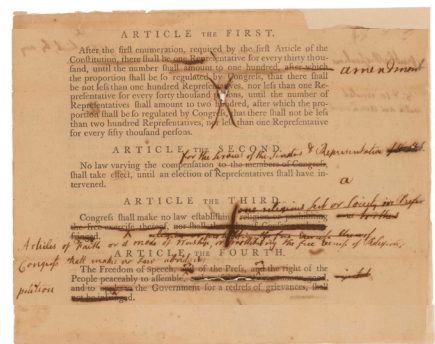 ARTICLE THE FIRST.
After the first enumeration, required by the first Article of the
Constitution, there shall be one Representative for every thirty thou-
sand, until the number shall amount to one hundred, after which
the proportion shall be so regulated by Congress, that there shall
be not less than one hundred Representatives, nor less than one Re-
presentative for every forty thousand persons, until the number of
Representatives shall amount to two hundred, after which the pro-
portion shall be so regulated by Congress, that there shall not be less
than two hundred Representatives, nor less than one Representative
for every fifty thousand persons.
amendment
ARTICLE THE SECOND.
for the services of the Senators & Representatives
No law varying the compensation to the members of Congress,
shall take effect, until an election of Representatives shall have in-
tervened.
a
ARTICLE THE THIRD.
one religious Sect or Society in
Congress shall make no law establishing religion or prohibiting
the free exercise thereof, nor shall
Articles of Faith or a mode of Worship, or prohibiting the free exercise of Religion,
Congress shall make no law abridging
ARTICLE THE FOURTH.
The Freedom of Speech, of the Press, and the right of the
People peaceably to assemble,
petition
and to the Government for a redress of grievances, shall